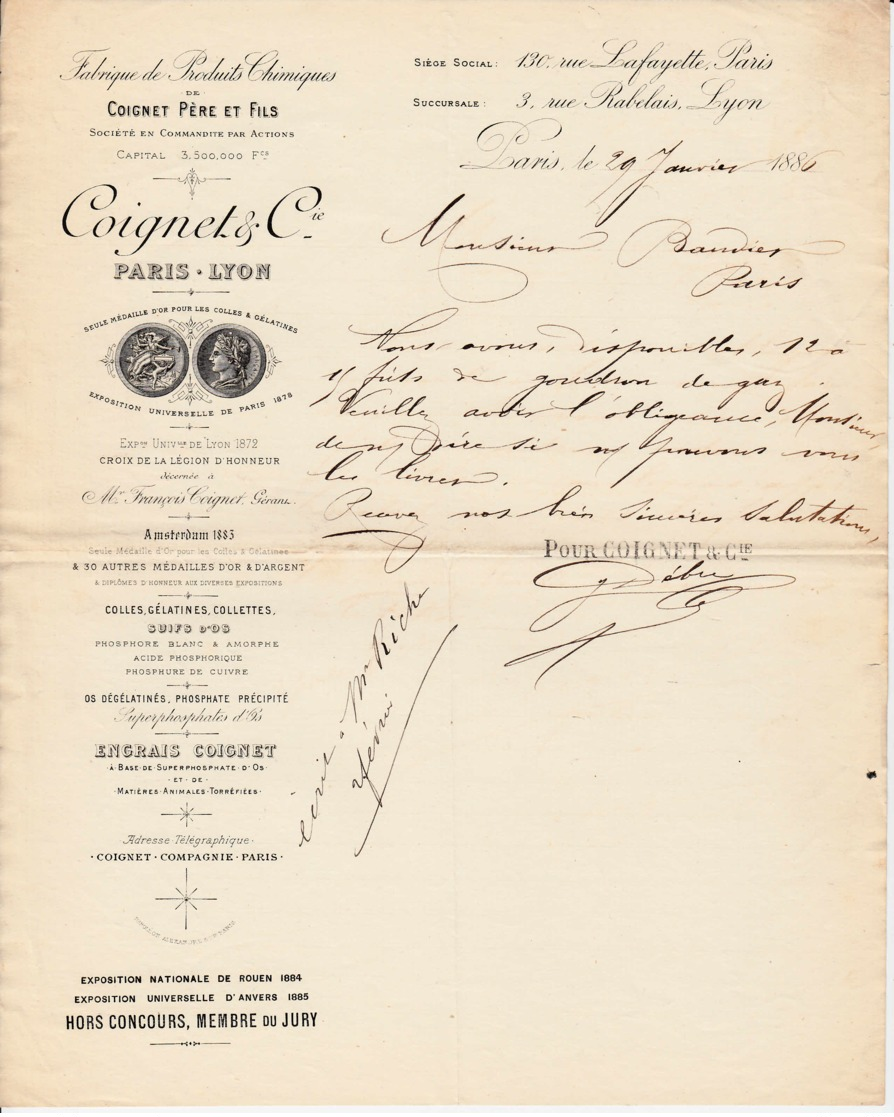 Fabrique de Produits Chimiques
DE
COIGNET PÈRE ET FILS
SOCIÉTÉ EN COMMANDITE PAR ACTIONS
CAPITAL 3,500,000 Fcs
Coignet & Cie
PARIS · LYON
SEULE MÉDAILLE D'OR POUR LES COLLES & GÉLATINES
EXPOSITION UNIVERSELLE DE PARIS 1878
EXPon UNIVlle DE LYON 1872
CROIX DE LA LÉGION D'HONNEUR
décernée à
Mr. François Coignet, Gérant.
Amsterdam 1883
Seule Médaille d'Or pour les Colles & Gélatines
& 30 AUTRES MÉDAILLES D'OR & D'ARGENT
& DIPLÔMES D'HONNEUR AUX DIVERSES EXPOSITIONS
COLLES, GÉLATINES, COLLETTES,
SUIFS D'OS
PHOSPHORE BLANC & AMORPHE
ACIDE PHOSPHORIQUE
PHOSPHURE DE CUIVRE
OS DÉGÉLATINÉS, PHOSPHATE PRÉCIPITÉ
Superphosphates d'Os
ENGRAIS COIGNET
·À·BASE·DE·SUPERPHOSPHATE·D'OS·
·ET·DE·
·MATIÈRES·ANIMALES·TORRÉFIÉES·
·Adresse·Télégraphique·
·COIGNET·COMPAGNIE·PARIS·
EXPOSITION NATIONALE DE ROUEN 1884
EXPOSITION UNIVERSELLE D'ANVERS 1885
HORS CONCOURS, MEMBRE DU JURY
SIÈGE SOCIAL: 130, rue Lafayette, Paris
SUCCURSALE: 3, rue Rabelais, Lyon
Paris, le 29 Janvier 1886
Monsieur Baudier
Paris
Nous avons, disponibles, 12 à
15 fûts de goudron de gaz.
Veuillez avoir l'obligeance, Monsieur,
de ns dire si ns pouvons vous
les livrer.
Recevez nos bien sincères salutations,
POUR COIGNET & CIE
écrit à Mr Riche
février